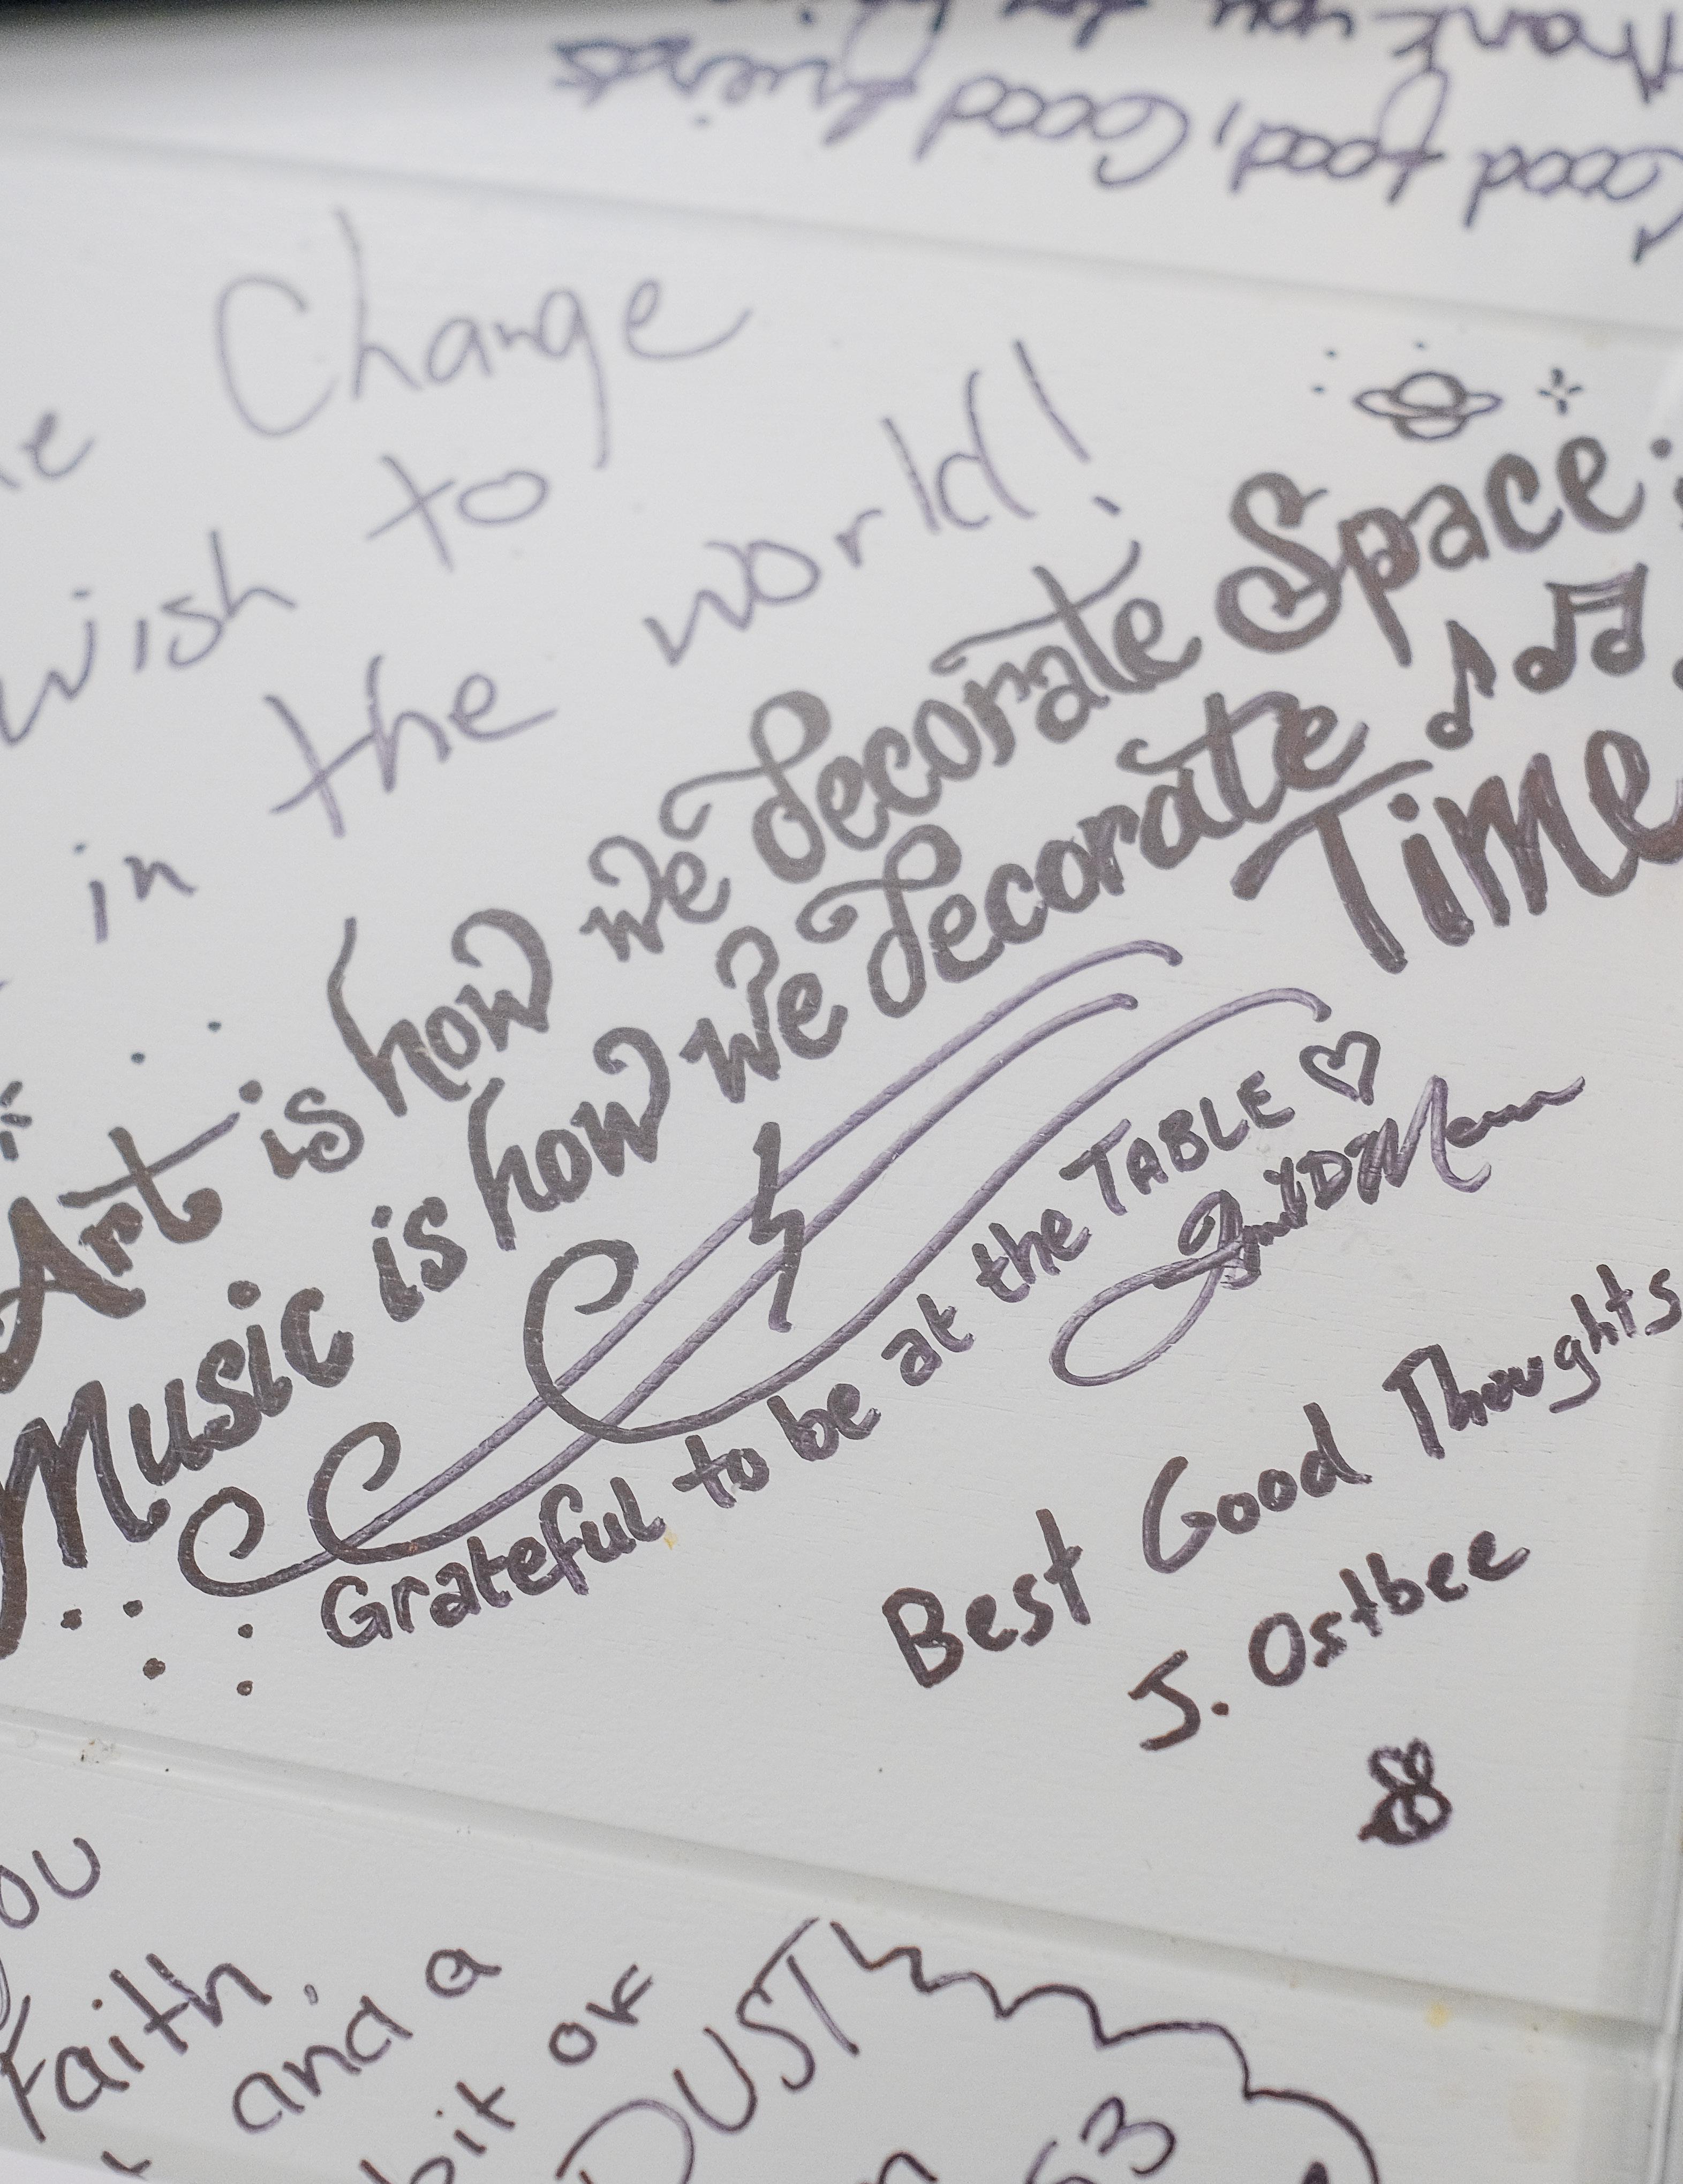 Thank you for being
Good food, Good friends
Change
wish to
in the world!
Art is how we decorate Space
Music is how we decorate
Time
Grateful to be at the TABLE
Best Good Thoughts
J. Ostbee
Faith,
and a
bit of
DUST
63